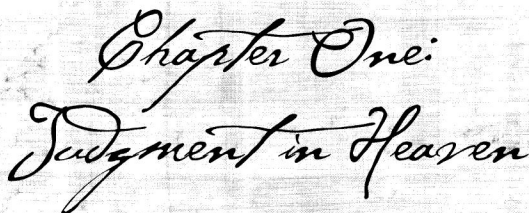 Chapter One:
Judgment in Heaven